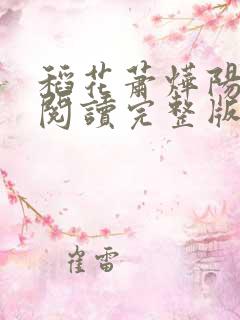 稻花蕭燁陽
閱讀完整版
崔雷